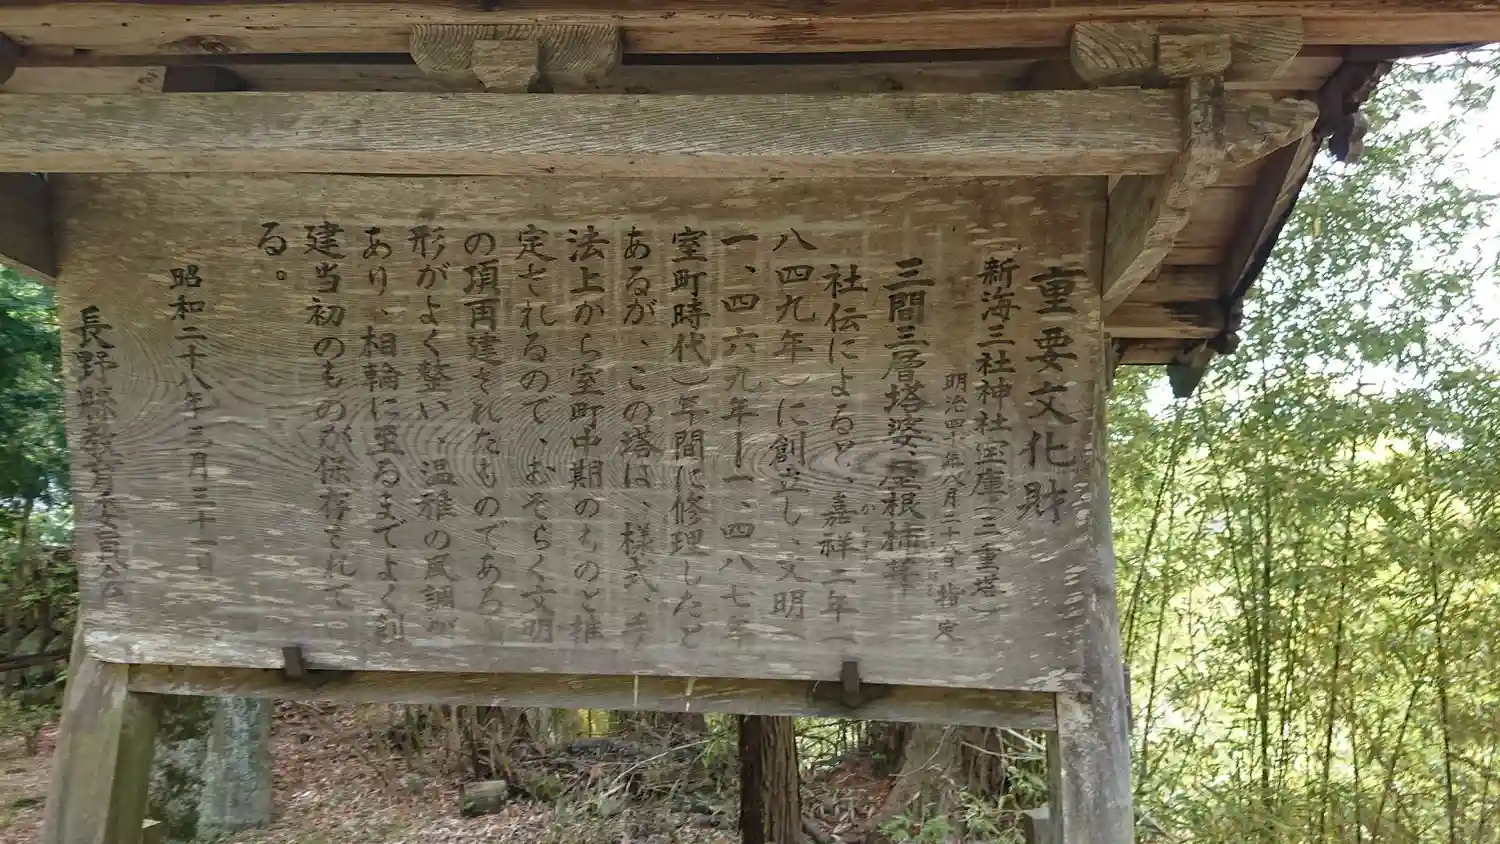 重要文化財
新海三社神社宝庫(三重塔)
明治四十年八月二十八日 指定
三間三層塔婆、屋根柿葺
社伝によると、嘉祥二年(
かしょう
八四九年)に創立し、文明(
一、四六九年ー一、四八七年
室町時代)年間に修理したと
あるが、この塔は、様式、手
法上から室町中期のものと推
定されるので、おそらく文明
の頃再建されたものであろ
形がよく整い、温雅の風調が
あり、相輪に至るまでよく創
建当初のものが保存されて
る。
昭和二十八年三月三十一日
長野縣教育委員会